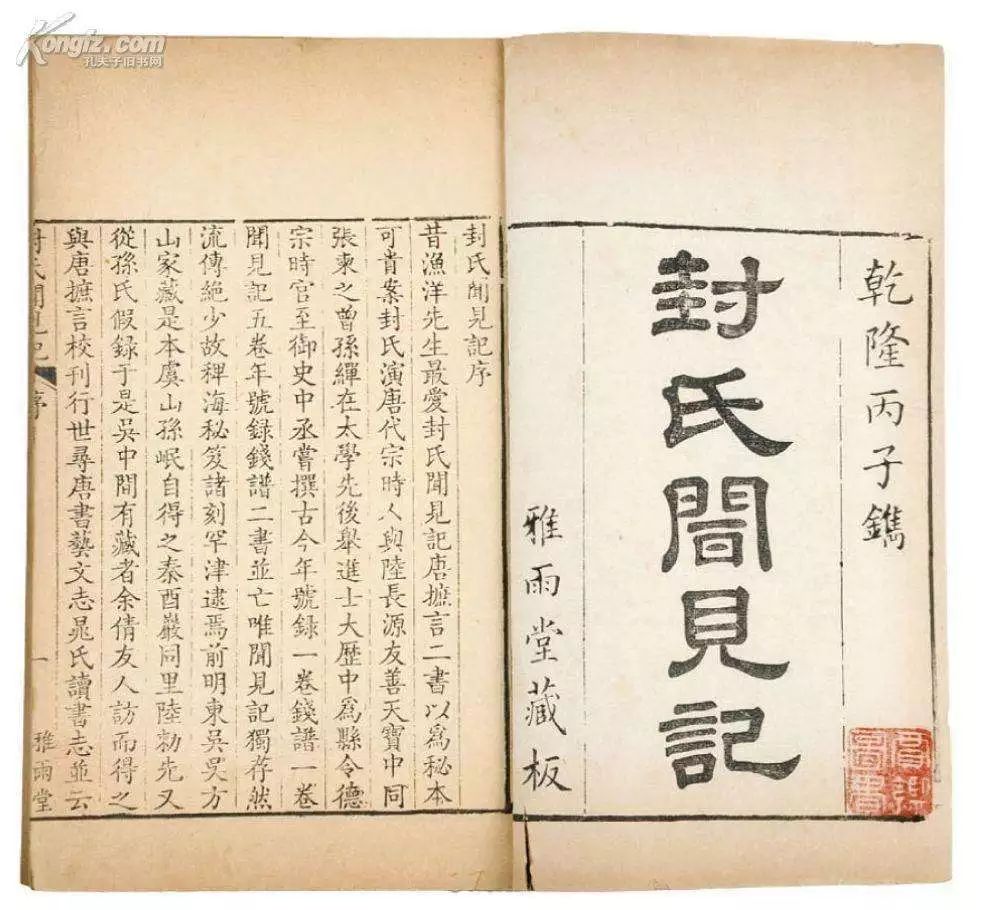 Kongfz.com
孔夫子旧书网
乾隆丙子鐫
封氏聞見記
雅雨堂藏板
封氏聞見記序
昔漁洋先生最愛封氏聞見記唐摭言二書以爲秘本
可貴案封氏演唐代宗時人與陸長源友善天寶中同
張柬之曾孫繟在太學先後舉進士大歷中爲縣令德
宗時官至御史中丞嘗撰古今年號録一卷錢譜一卷
聞見記五卷年號録錢譜二書並亡唯聞見記獨存然
流傳絶少故稗海秘笈諸刻罕津逮焉前明東吳吳方
山家藏是本虞山孫岷自得之秦酉巖同里陸勑先又
從孫氏假録于是吳中間有藏者余倩友人訪而得之
與唐摭言校刊行世尋唐書藝文志晁氏讀書志並云
封氏聞見記
序
一
雅雨堂